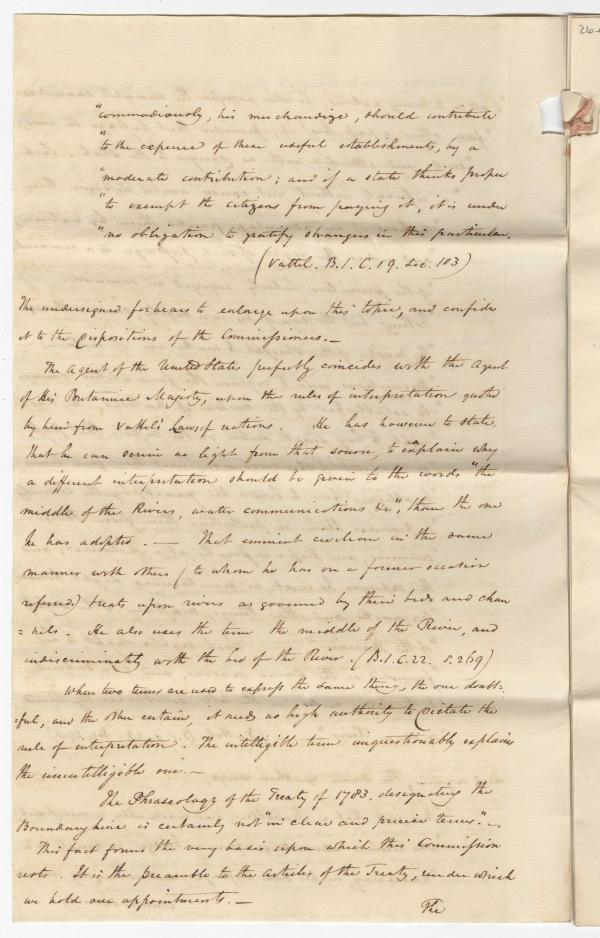 "commodiously, his merchandize, should contribute
"to the expence of these useful establishments, by a
"moderate contribution; and if a state thinks proper
"to exempt the citizens from paying it, it is under
"no obligation to gratify strangers in this particular.
(Vattel. B.1. C.19. Sec. 103)
The undersigned forbears to enlarge upon this topic, and confides
it to the Dispositions of the Commissioners. —
The Agent of the United States perfectly coincides with the Agent
of His Britannic Majesty, upon the rules of interpretation quoted
by him from Vattel's Laws of nations. He has however to state
that he can derive no light from that source, to explain why
a different interpretation should be given to the words "the
middle of the Rivers, water communications &c", than the one
he has adopted. — That eminent civilian in the same
manner with others (to whom he has on a former occasion
referred) treats upon rivers as governed by their beds and chan
=nels. He also uses the term the middle of the River, and
indiscriminately with the bed of the River. (B.1.C.22. S.269)
When two terms are used to express the same thing, the one doubt=
=ful, and the other certain, it needs no high authority to Dictate the
rule of interpretation. The intelligible term unquestionably explains
the unintelligible one. —
The Phraseology of the Treaty of 1783. designating the
Boundary line is certainly not "in clear and precise terms." —
This fact forms the very basis upon which this Commission
rests. It is the preamble to the articles of the Treaty, under which
we hold our appointments. —
The